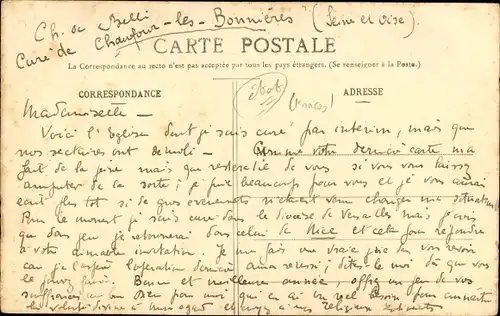 Ch. de Belli
Curé de Chaufour-les-Bonnières (Seine et Oise)
CARTE POSTALE
La Correspondance au recto n'est pas acceptée par tous les pays étrangers. (Se renseigner à la Poste.)
CORRESPONDANCE
ADRESSE
Mademoiselle -
Voici l'Eglise dont je suis curé par interim, mais que
nos sectaires ont démoli - Comme votre dernière carte m'a
fait de la peine mais que de vous si vous vous laissez
amputer de la sorte; je prie beaucoup pour vous et je vous aurai
écrit plus tôt si de gros évènements n'étaient venus changer ma situation
Pour le moment je suis curé dans le diocèse de Versailles mais je crois
que dans peu je retournerai dans celui de Nice et cette fois répondre
à votre aimable invitation. Je me fais une vraie joie de vous revoir
car je l'espère l'opération dernière aura réussi; dites-le moi dès que vous
le pouvez. Bonne et meilleure année, offrez un peu de vos
souffrances au bon Dieu pour moi qui en ai un réel besoin pour connaître
la volonté divine à mon égard et croyez à mes religieux sentiments